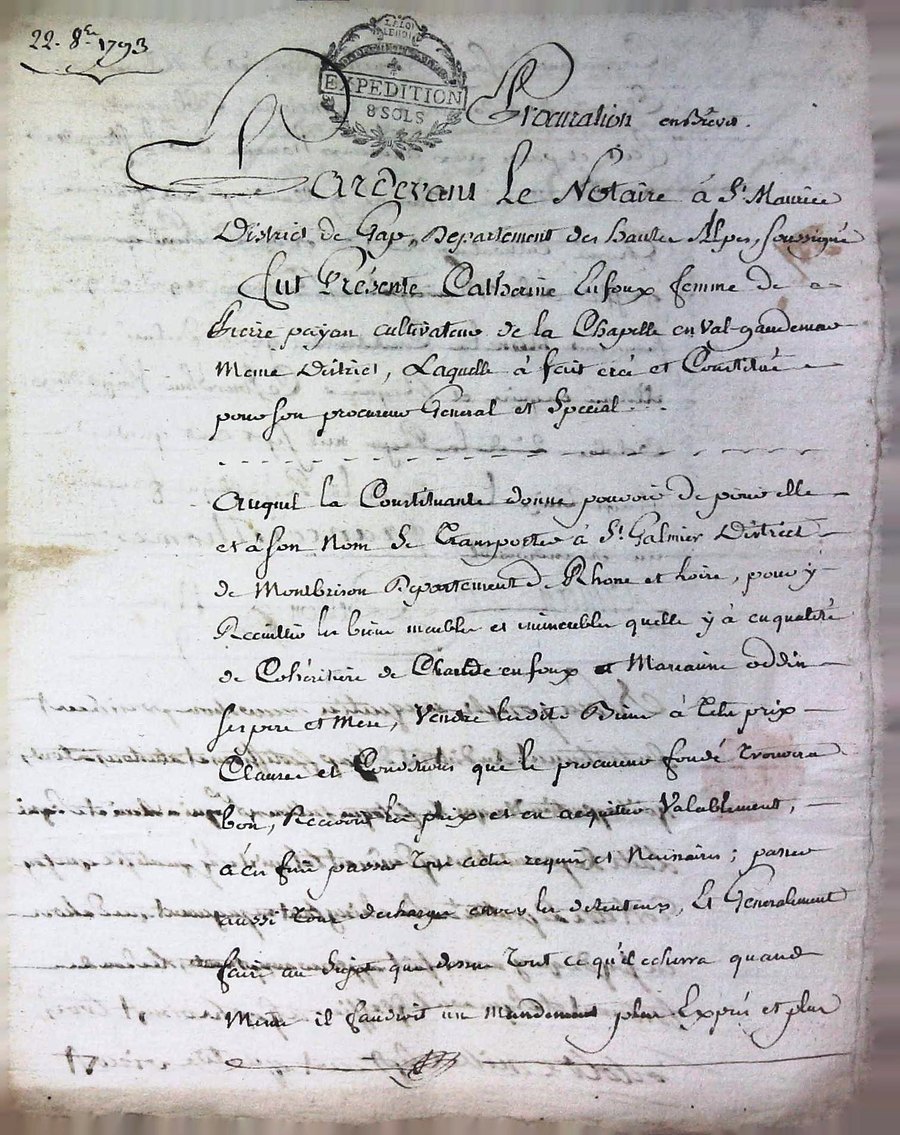 22. 8.re 1793
LA LOI
EXPEDITION
8 SOLS
Procuration en Brevet.
Pardevant Le Notaire à St. Maurice
District de Gap, Departement des hautes Alpes, soussigné
Fut Présente Catherine Enfoux femme de
Pierre payan cultivateur de la Chapelle en Val-gaudemar
Meme District, Laquelle à fait créé et Constitué
pour son procureur General et Special
Auquel la Constituante donne pouvoir de pour elle
et à son nom se Transporter à St. Galmier District
de Montbrison Departement de Rhone et Loire, pour y
Receuillir les biens meubles et immeubles quelle y à en qualité
de Cohéritiere de Charlde enfoux et Marianne oddin
ses pere et Mere, Vendre lesdits Biens à Tels prix
Clauses et Conditions que le procureur fondé trouvera
bon, Recevoir les prix et en acquitter Valablement,
à en faire passer Tous actes requis et Necessaires; passer
aussi Tous decharges envers les detenteurs, Et Generalement
faire au sujet que dessus Tout ce qu'il echerra quand
Meme il faudroit un mandement plus Exprès et plus